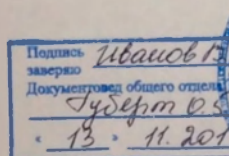 Подпись Иванов В
заверяю
Документовед общего отдела
Губерт О.В
« 13 » 11.201